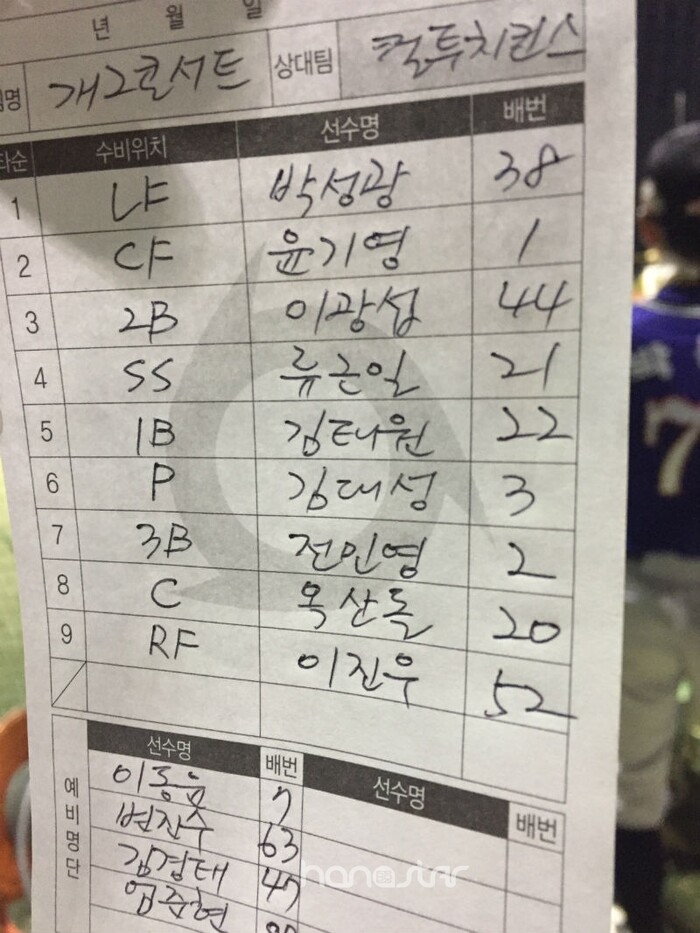 년 월 일
명 개그콘서트 상대팀 컬투치킨스
타순 수비위치 선수명 배번
1 LF 박성광 38
2 CF 윤기영 1
3 2B 이광섭 44
4 SS 류근일 21
5 1B 김태원 22
6 P 김대성 3
7 3B 전민영 2
8 C 옥산돌 20
9 RF 이진우 52
예비명단 선수명 배번 선수명 배번
이동윤 7
변진수 63
김경태 47
엄준현
hanastar
7